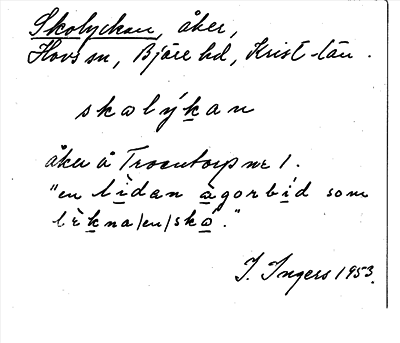 Skolyckan, åker,
Hovs sn, Bjäre hd, Krist-län.
skolýkan
åker å Troentorp nr 1.
"en lìdan àgorbíd som
lèkna/en/skó."
I. Ingers 1953.